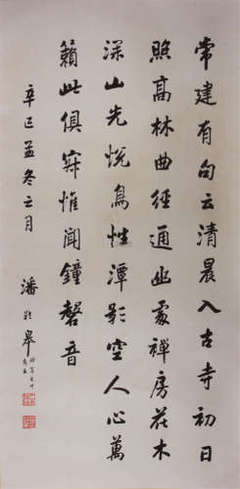 常建有句云清晨入古寺初日
照高林曲徑通幽處禪房花木
深山光悅鳥性潭影空人心萬
籟此俱寂惟聞鐘磬音
辛巳孟冬之月 潘齡皋